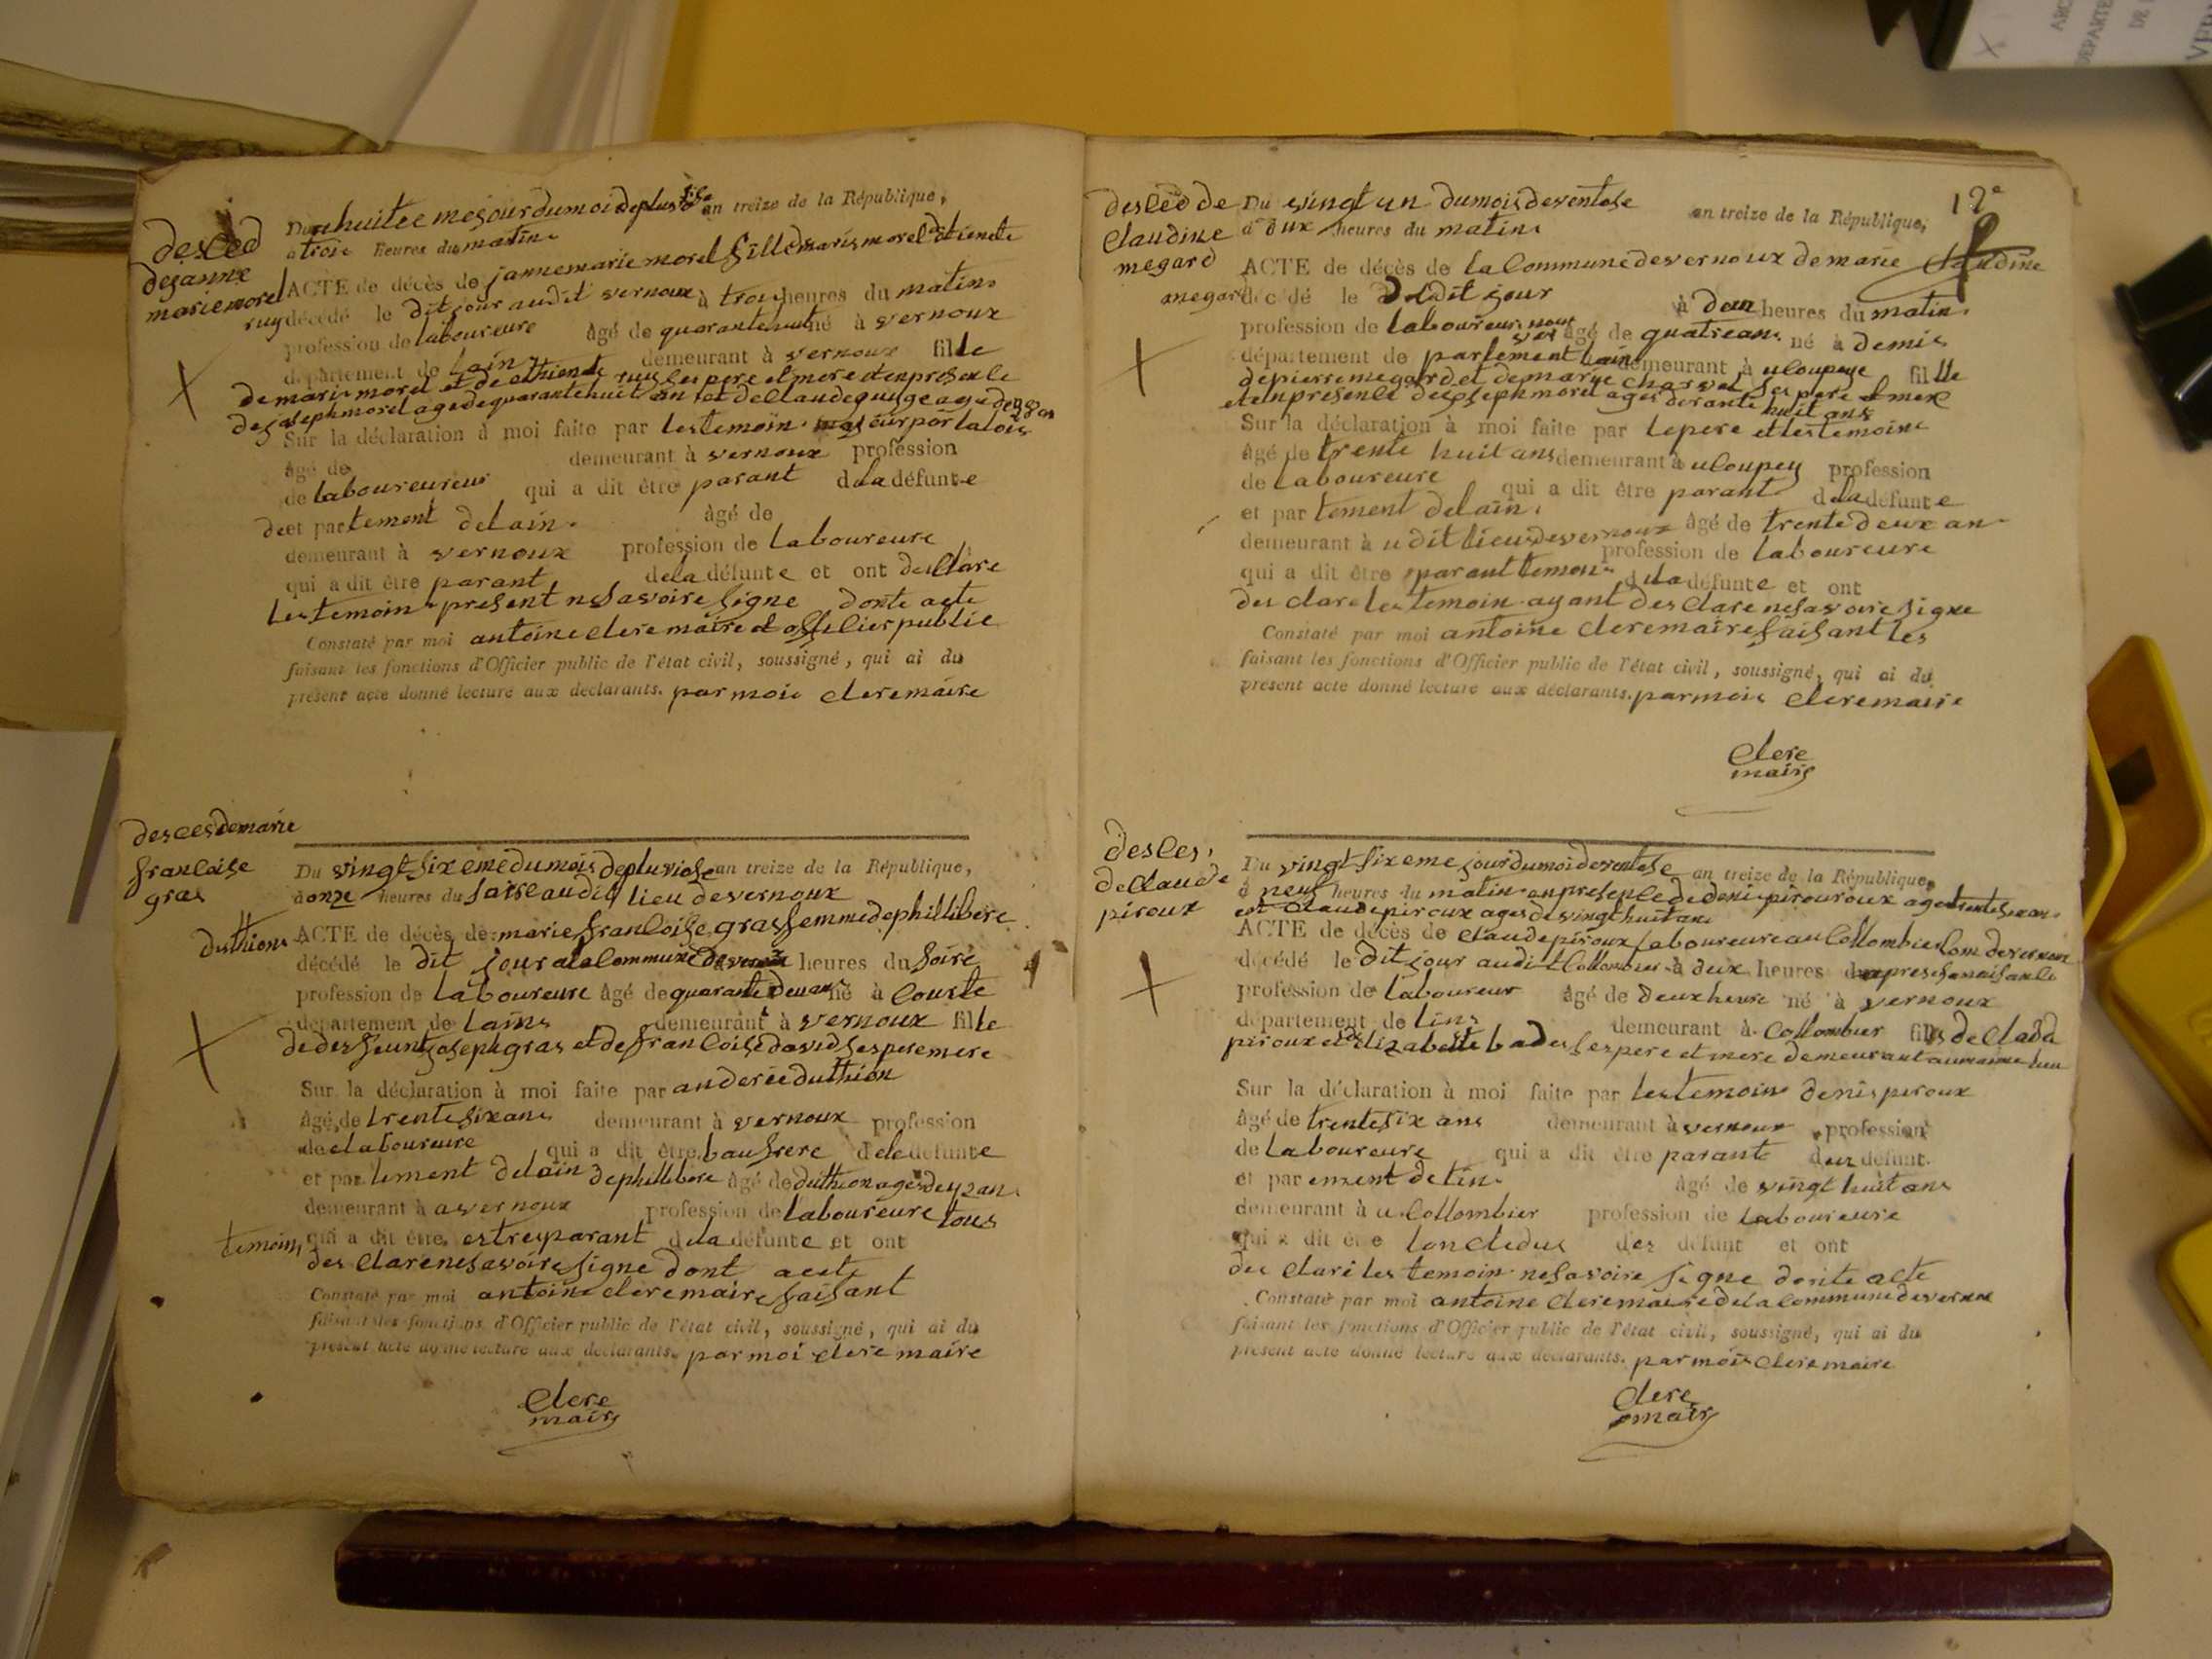 desced
dejanne
marie morel
ruy
Du huitee me jour du moi de pluviose an treize de la République,
a troie heures du matin
ACTE de décès de janne marie morel fille maris morel etienete
décédé le dit jour au dit vernoux à troi heures du matin
profession de laboureure âgé de quarante huit né à vernoux
département de lain demeurant à vernoux fille
de maris morel et de ethienete ruy ses pere et mere et en presen le
de joseph morel age de quarante huit an et de Claude guyge age de 28 an
Sur la déclaration à moi faite par les temoin majeur por la lois
âgé de demeurant à vernoux profession
de laboureureur qui a dit être parant de la défunte
de et partement de lain. âgé de
demeurant à vernoux profession de laboureure
qui a dit être parant de la défunte et ont desclare
les temoin present ne savoire signe donte acte
Constaté par moi antoine clere maire et offilier public
faisant les fonctions d'Officier public de l'état civil, soussigné, qui ai du
présent acte donné lecture aux déclarants. par moie clere maire
desces de marie
francoise
gras
duthion
Du vingt six eme du mois de pluviose an treize de la République,
à onze heures du soire au dit lieu de vernoux
ACTE de décès de marie francoise gras femme de phillibere
décédé le dit jour a la Commune de vernoux heures du soire
profession de laboureure âgé de quarante deu ans né à Courte
département de lains demeurant à vernoux fille
de des feunt joseph gras et de francoise david ses pere mere
Sur la déclaration à moi faite par anderee duthion
âgé de trente six ans demeurant à vernoux profession
de laboureure qui a dit être baufrere de le défunte
et par tement de lain de phillibere âgé de duthion ages de 42 an
demeurant à a vernoux profession de laboureure tous
temoin, qui a dit être estre parant de la défunte et ont
des clare ne savoire signe dont acete
Constaté par moi antoine clere maire faisant
faisant les fonctions d'Officier public de l'état civil, soussigné, qui ai du
présent acte donné lecture aux déclarants. par moi clere maire
Clere
maire
12e
desced de
Claudine
megard
Du vingt un du mois de ventose an treize de la République,
à dux heures du matin
ACTE de décès de la Commune de vernoux de marie Claudine
megard décédé le Ledit jour à deux heures du matin
profession de laboureur âgé de quatre an né à demis
département de partement lain demeurant à uloupeye fille
de pierre megard et de marye charvet ses pere et mere
et en presen le de joseph morel ages de rante huit ans
Sur la déclaration à moi faite par le pere et les temoine
âgé de trente huit ans demeurant à uloupey profession
de Laboureure qui a dit être parant de la défunte
et par tement de lain. âgé de trente deux an
demeurant à u dit lieus de vernoux profession de laboureure
qui a dit être parant temon de la défunte et ont
des clare les temoin ayant des clare ne savoire signe
Constaté par moi antoine clere maire faisant les
faisant les fonctions d'Officier public de l'état civil, soussigné, qui ai du
présent acte donné lecture aux déclarants. par moie clere maire
Clere
maire
desces,
de Claude
piroux
Du vingt six eme jour du moi de ventose an treize de la République,
à neuf heures du matin en presen le de deni pirouroux age trente six an
et Claude piroux ages de vingt huit ans
ACTE de décès de Claude piroux laboureure au Collombier Com de vernoux
décédé le dit jour au dit Collombier à deux heures apres sa naisanle
profession de laboureur âgé de deux heure né à vernoux
département de lins demeurant à Collombier fils de Clada
piroux et de elizabette bades ses pere et mere demeurant au maime lieu
Sur la déclaration à moi faite par les temoin denis piroux
âgé de trente six ans demeurant à vernoux profession
de laboureure qui a dit être parant deu défunt
et par ement de lin. âgé de vingt huit ans
demeurant à u Collombier profession de laboureure
qui a dit être loncledus des défunt et ont
des clare les temoin ne savoire signe donte acte
Constaté par moi antoine clere maire de la Commune de vernoux
faisant les fonctions d'Officier public de l'état civil, soussigné, qui ai du
présent acte donné lecture aux déclarants. par mois clere maire
Clere
maire